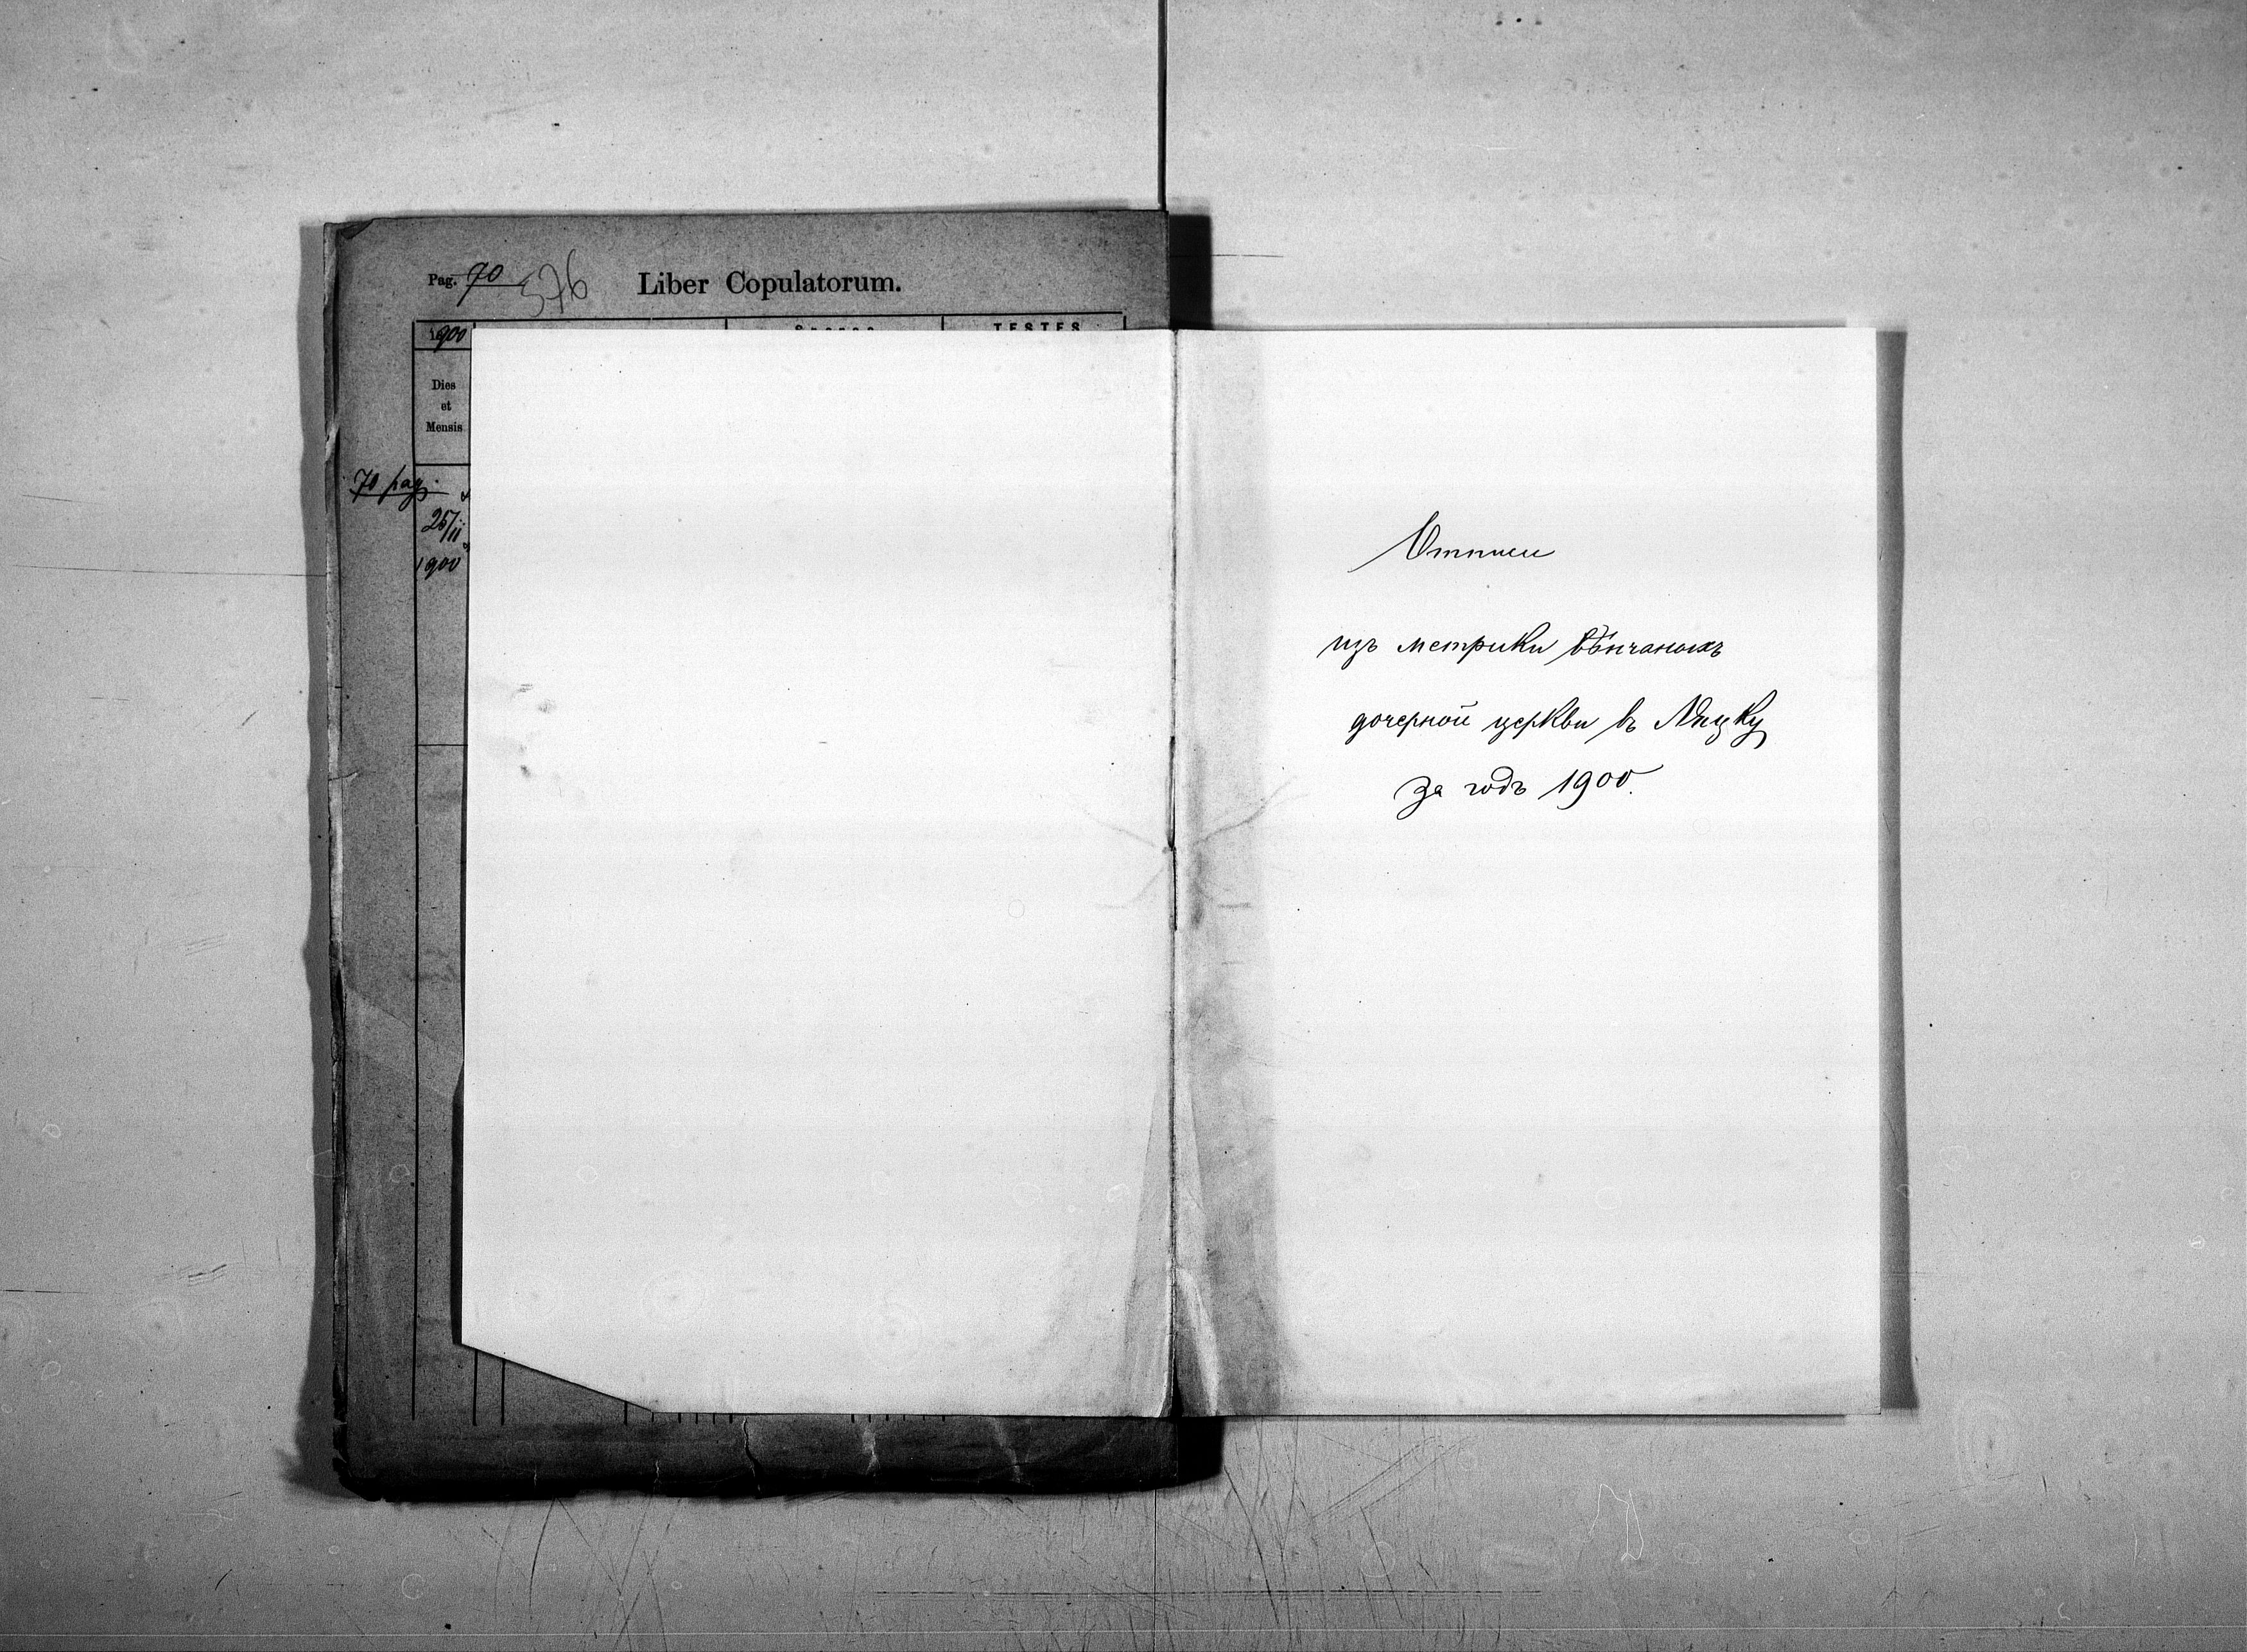 Pag. 70 576 Liber Copulatorum.
1900
TESTES
Dies
et
Mensis
70 pag.
25/II
1900
Отписи
изъ метрики вѣнчаныхъ
дочерной церкви въ
за годъ 1900.